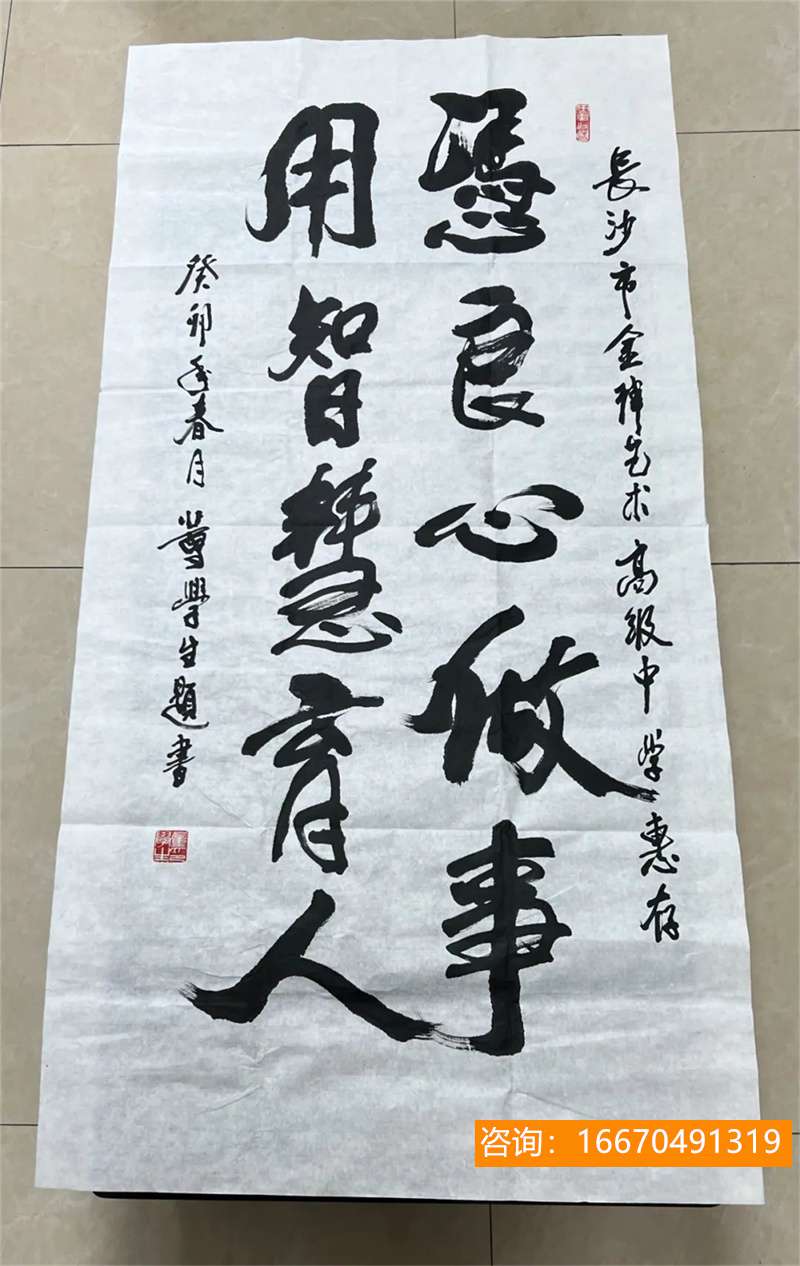 長沙市金犙艺术高级中学惠存
憑良心做事
用智慧育人
癸卯年春月 尊學生題書
咨询：16670491319